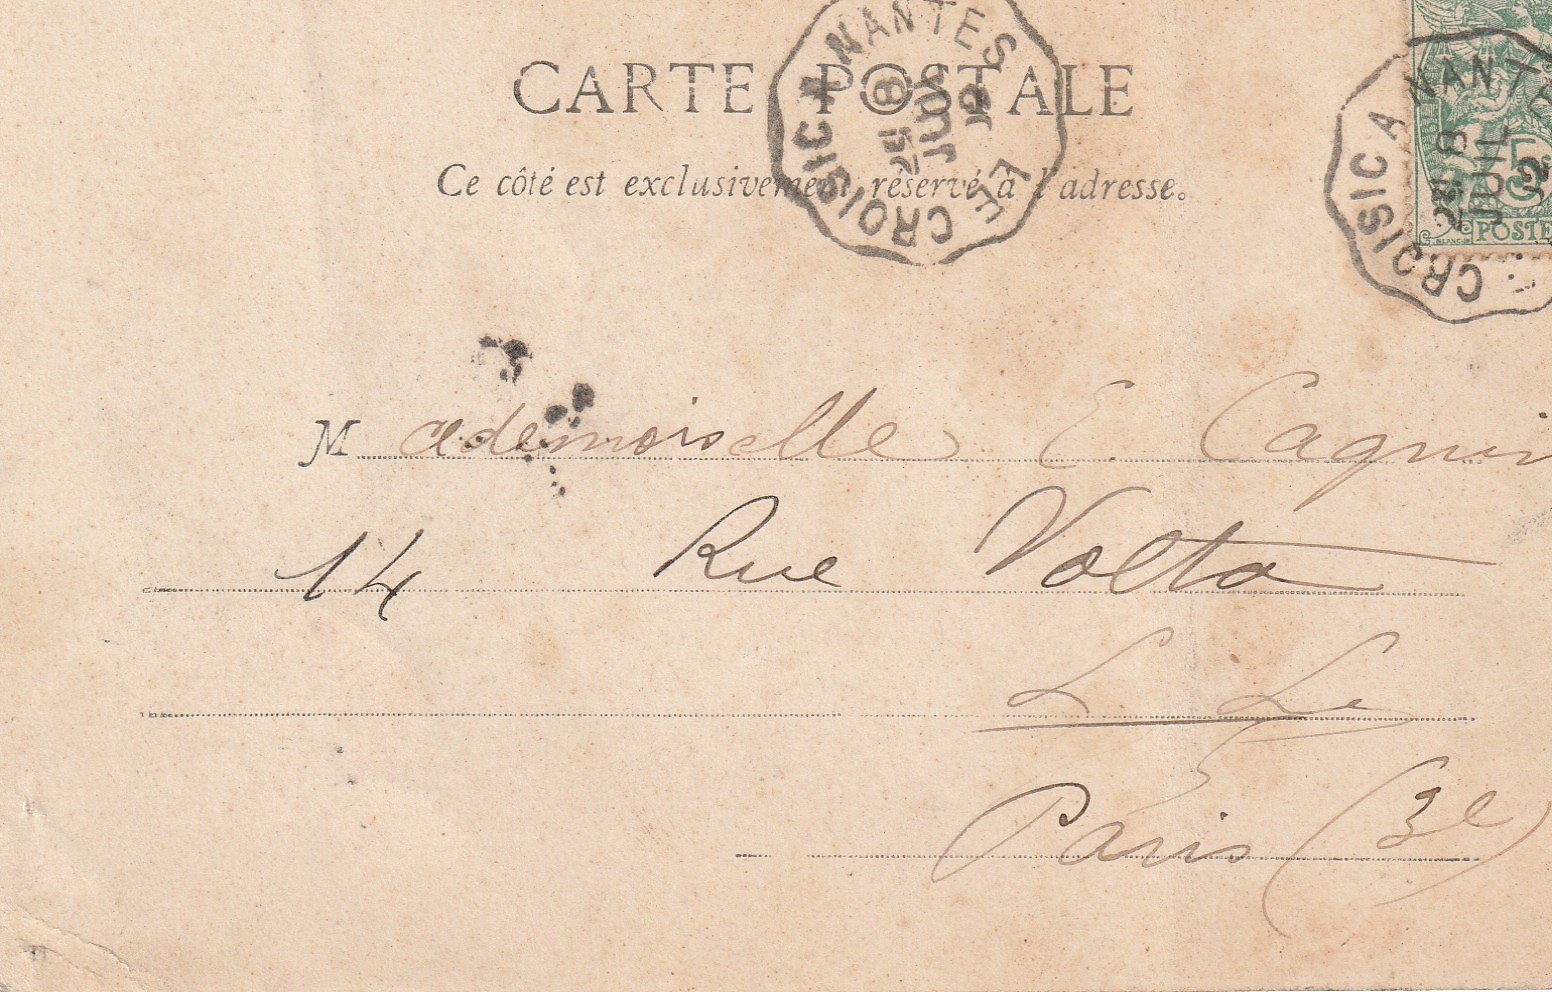 CARTE POSTALE
Ce côté est exclusivement réservé à l'adresse.
LE CROISIC A NANTES
CROISIC A NANTE
JUIL
5
POSTE
Mademoiselle E. Cagnin
14 Rue Volta
Paris (3e)